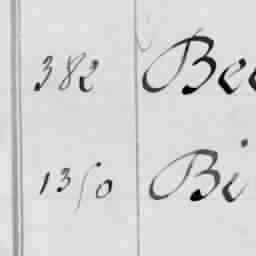 382 Bee
1350 Bi